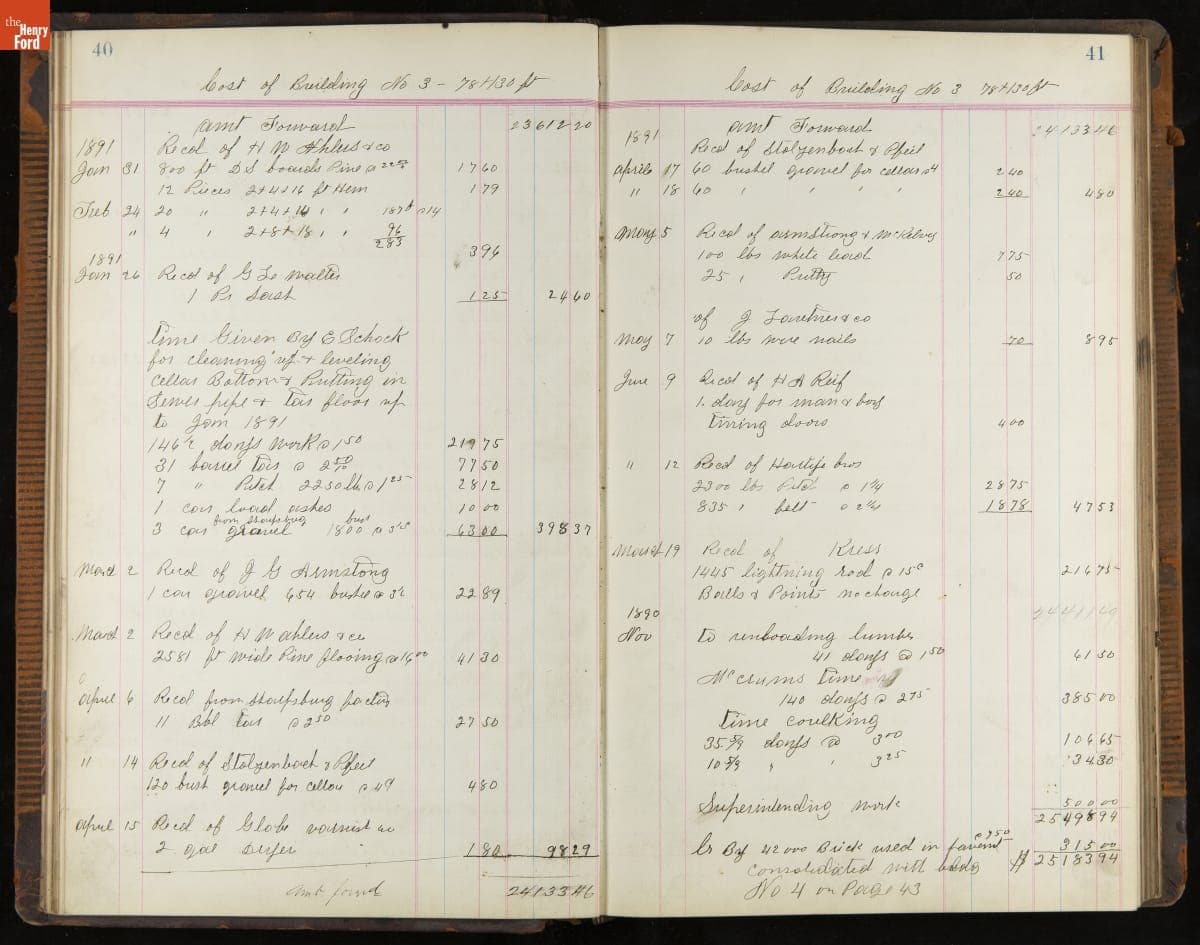 the
Henry
Ford
40
Cost of Building No 3 - 78+130 ft
amt Forward 23612 20
1891 Recd of H W Ahlers & co
Jan 31 800 ft D S boards Pine @ 22 00 17 60
12 Pieces 2+4+16 ft Hem 1 79
Feb 24 20 " 2+4+16 " " 187 ft @ 14
" 4 " 2+8+18 " " 96
283 3 96
1891
Jan 26 Recd of G Le Walter
1 Pr Sash 1 25 24 60
time Given By E Schock
for cleaning up & leveling
Cellar Bottom & Putting in
Sewer pipe & tar floor up
to Jan 1891
146 1/2 days work @ 1 50 219 75
31 barrel tar @ 2 50 77 50
7 " Pitch 2250 lb @ 1 25 28 12
1 car load ashes 10 00
3 car gravel from Sharpsburg 1800 bush @ 3 1/2 63 00 398 37
March 2 Recd of J G Armstrong
1 car gravel 654 bushel @ 3 1/2 22 89
March 2 Recd of H W ahlers & co
2581 ft wide Pine flooring @ 16 00 41 30
April 6 Recd from Sharpsburg factory
11 Bbl tar @ 2 50 27 50
" 14 Recd of Stolzenbach & Pfeil
120 bush gravel for cellar @ 4 4 80
April 15 Recd of Globe varnish co
2 gal Dryer 1 80 98 29
amt forwd 24133 46
41
Cost of Building No 3 78+130 ft
amt Forward 24133 46
1891 Recd of Stolzenbach & Pfeil
April 17 60 bushel gravel for cellar @ 4 2 40
" 18 60 " " " " 2 40 4 80
May 5 Recd of armstrong & McKelvy
100 lbs white lead 7 75
25 " Putty 50
of J & co
May 7 10 lbs wire nails 70 8 95
June 9 Recd of H A Reif
1 day for man & boy
tining doors 4 00
" 12 Recd of bros
2300 lbs Pitch @ 1 1/4 28 75
835 " felt @ 2 1/4 18 78 47 53
March 19 Recd of Kress
1445 lightning rod @ 15c 216 75
Balls & Points no charge
24411 49
1890
Nov to unloading lumber
41 days @ 1 50 61 50
McCrums time
140 days @ 2 75 385 00
time caulking
35 5/9 days @ 3 00 106 65
10 5/9 " " 3 25 34 30
Superintending work 500 00
25498 94
Cr By 42000 Brick used in pavemt @ 7 50 315 00
consolidated with bldg $ 25183 94
No 4 on Page 43